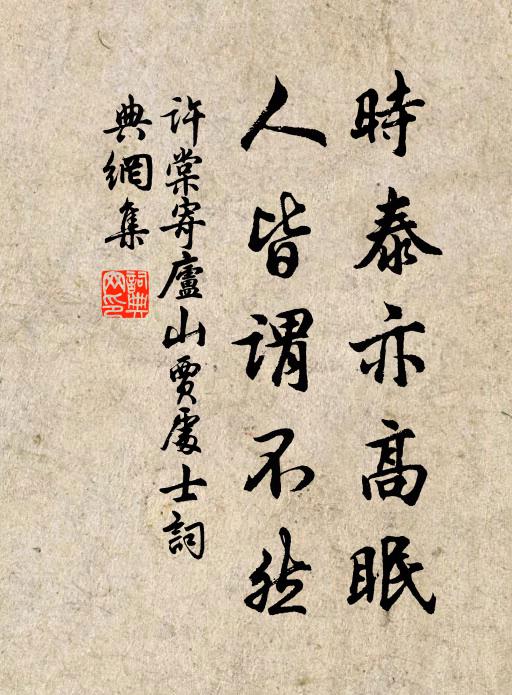 時泰亦高眠
人皆謂不然
許棠寄廬山賈處士詞
典網集
詞典網印